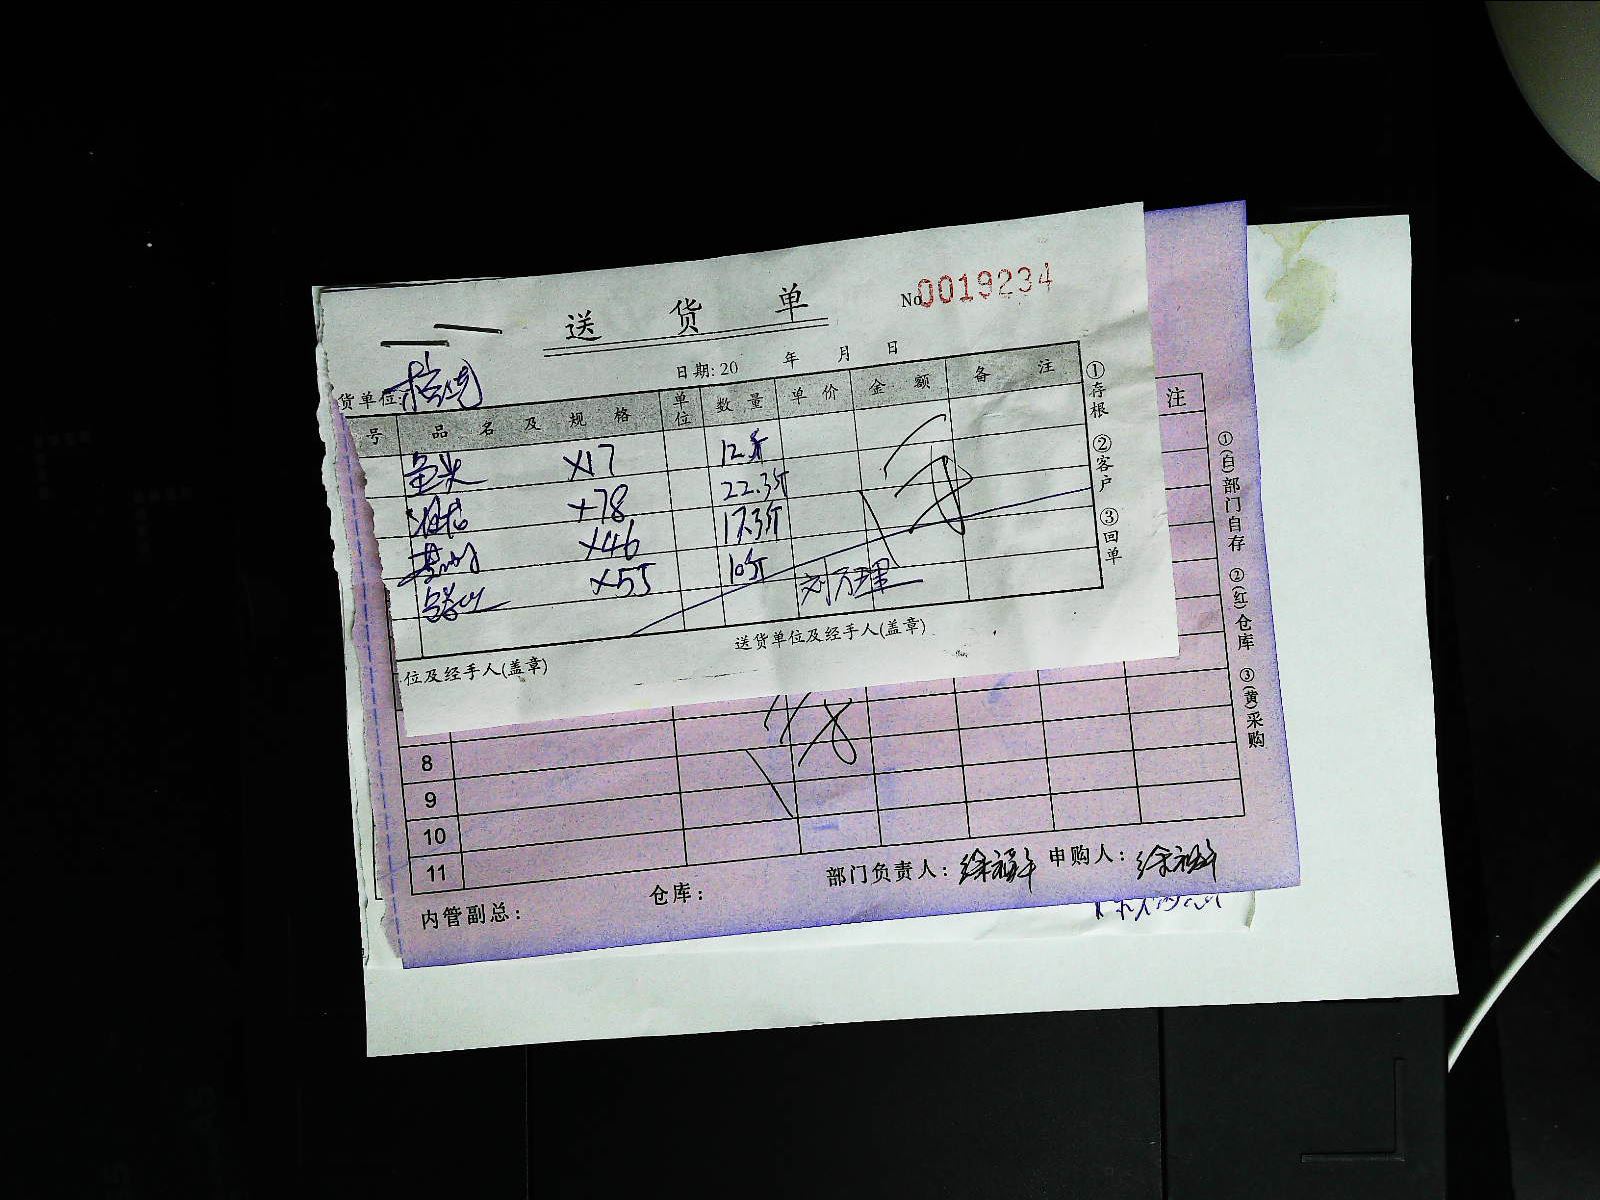 送 货 单
No 0019234
日期: 20 年 月 日
货单位:
号 品 名 及 规 格 单位 数 量 单 价 金 额 备 注
鱼头 ×17 12斤
×78 22.3斤
×46 17.3斤
×55 10斤
刘万理
位及经手人(盖章) 送货单位及经手人(盖章)
①存根 ②客户 ③回单
注
8
9
10
11
①(白)部门自存 ②(红)仓库 ③(黄)采购
内管副总: 仓库: 部门负责人: 申购人: